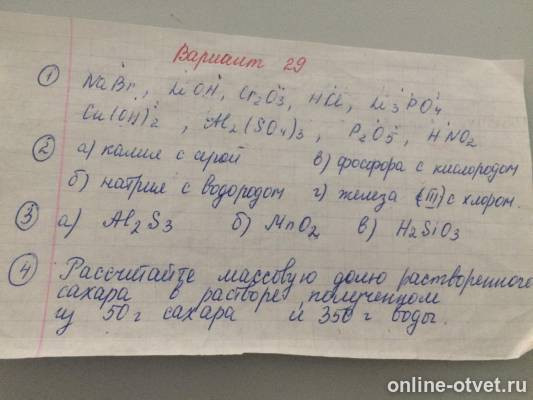 Вариант 29
① NaBr, LiOH, Cr2O3, HCl, Li3PO4
Cu(OH)2, Al2(SO4)3, P2O5, HNO2
② а) калия с серой в) фосфора с кислородом
б) натрия с водородом г) железа (III) с хлором.
③ а) Al2S3 б) MnO2 в) H2SiO3
④ Рассчитайте массовую долю растворенного
сахара в растворе, полученном
из 50 г сахара и 350 г воды.
online-otvet.ru